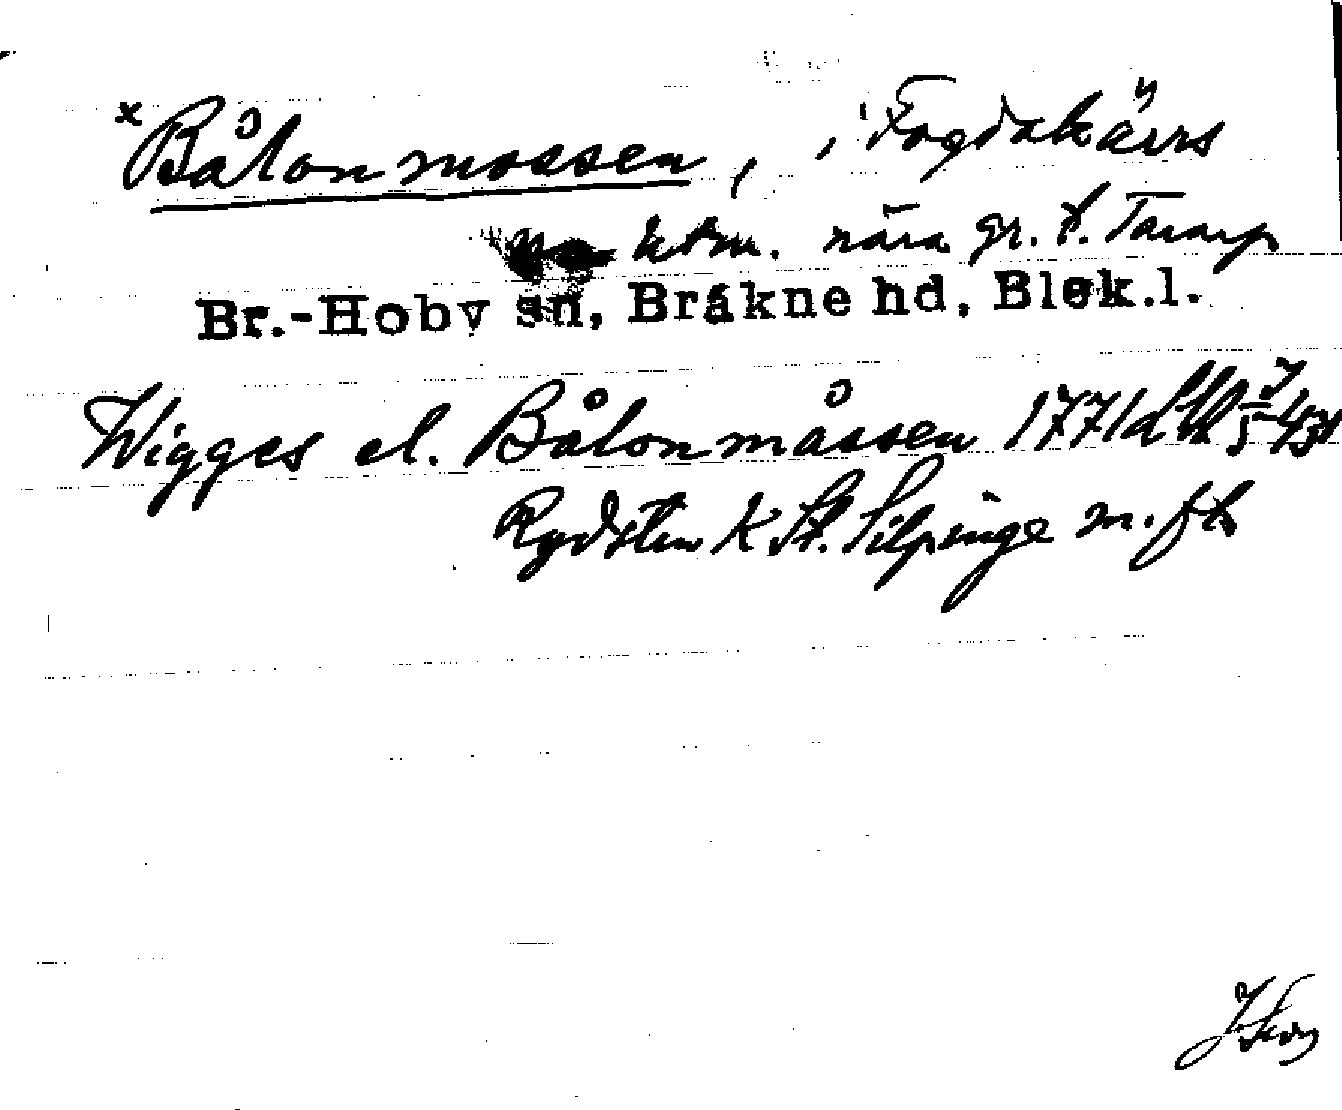 *Bålonmossen, i Fogdakärrs
utm. nära gr. t. Tararp
Br.-Hoby sn, Bräkne hd, Blek.l.
Wigges el. Bålonmåssen 1771
Rydsten K St. Silpinge m. fl